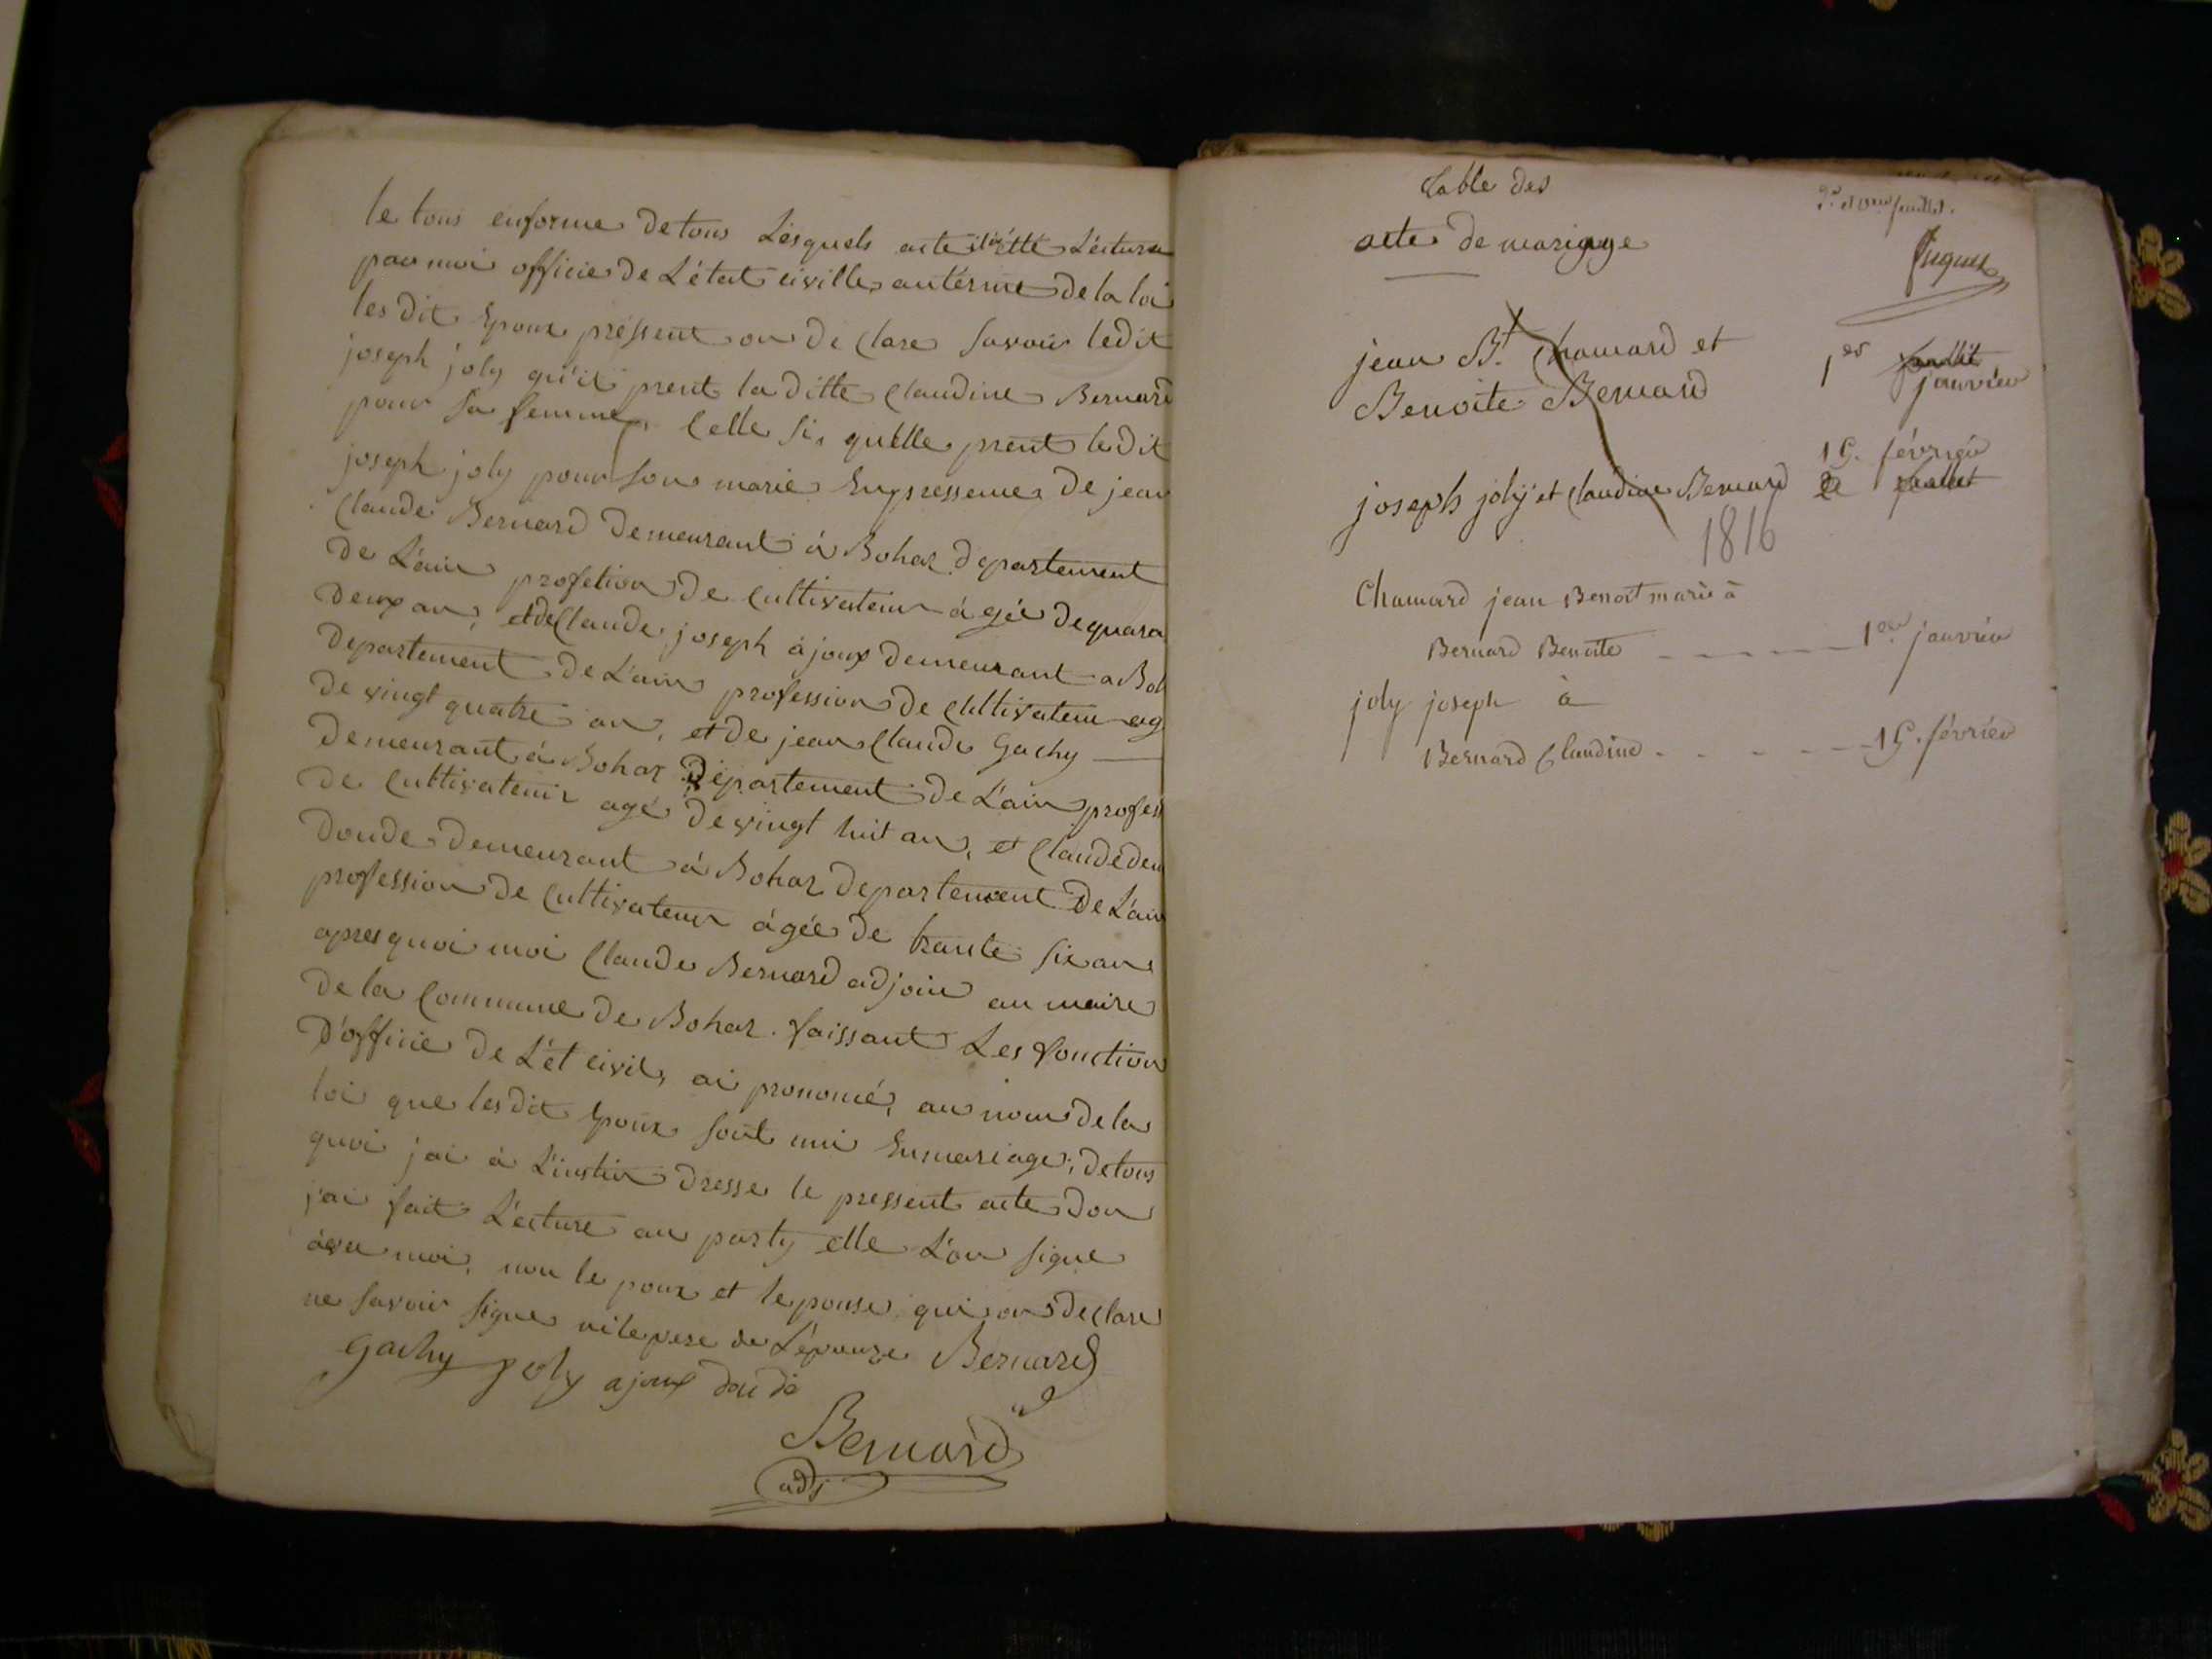 le tous enforme de tous Lésquels acte il à étté Léctura
par moi officie de L'état civille, au térme de la loi
les dit Epoux préssent on de Clare savoir ledit
joseph joly qu'il prent laditte Claudine Bernard
pour sa femme, Celle si, qu'elle prent ledit
joseph joly pour sons marie, En pressence, de jean
Claude Bernard demeurant à Bohaz departement
de L'ain profetion de Cultivateur àgée de quara
deux an, et de Claude joseph àjoux demeurant a Boh
departement de L'ain profession de Cultivateur ag
de vingt quatre an, et de jean Claude Gachy
demeurant à Bohaz Département de L'ain profess
de Cultivateur agé de vingt huit an, et Claude den
Doude demeurant à Bohaz departement de L'ain
profession de Cultivateur àgée de trante six ans
apres quoi moi Claude Bernard adjoin au maire
de la Commune de Bohaz. faissant Les fonction
D'officie de L'ét civil, ai prononcé, au nom de la
loi que les dit Epoux sont uni En mariage, de tous
quoi jai à L'instin dresse le pressent acte don
j'ai fait Lécture au party elle L'on signe
avec moi, non le poux et le pouse, qui on declare
ne savoir signe ni le pere de L'épouze Bernard
Gachy joly ajoux doude
Bernard
adj
table des
acte de mariage
2e et feuillet.
jean Bt. Chamard et
Benoite Bernard 1er janvier
15. février
joseph joly et Claudine Bernard
1816
Chamard jean Benoit marié à
Bernard Benoite 1er janvier
joly joseph à
Bernard Claudine 15. février